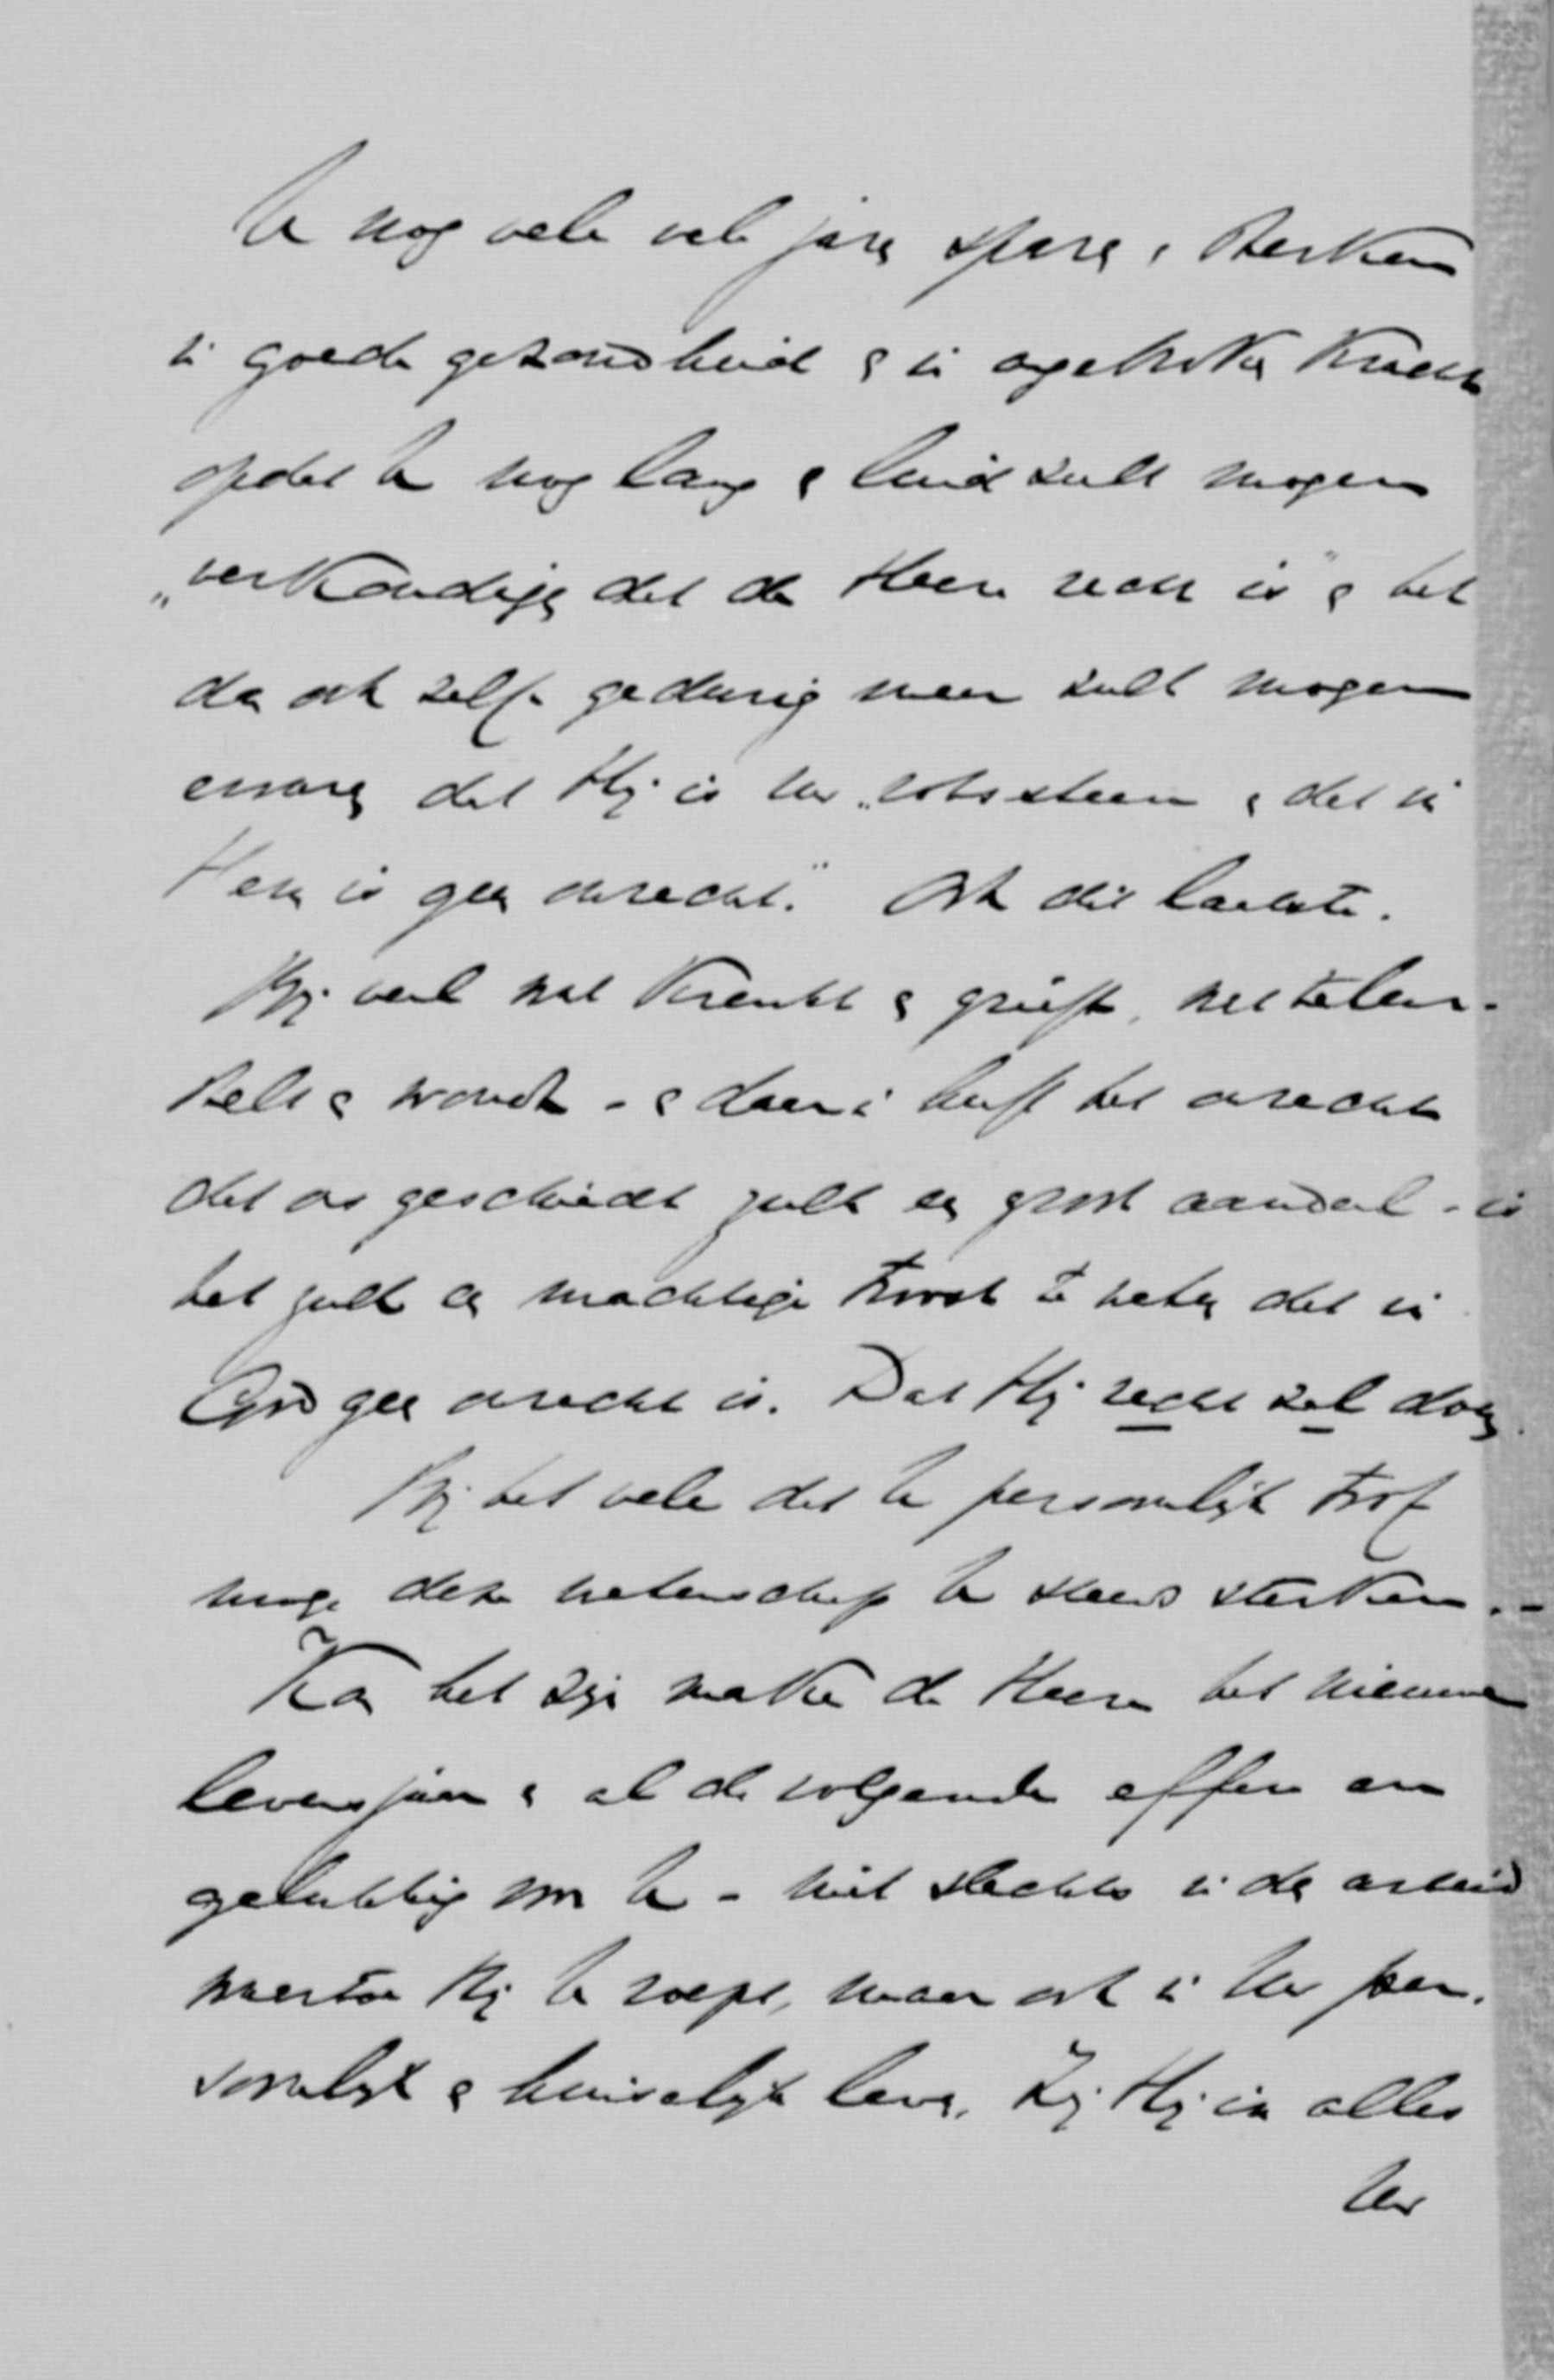 U nog vele vele jaren sparen, sterken
in goede gezondheid en in ongebroken kracht
opdat U nog lang en luid zult mogen
„verkondigen dat de Heere recht is" en het
dan ook zelf gedurig meer zult mogen
ervaren dat Hij is Uw „rotssteen en dat in
Hem is geen onrecht." Ook dit laatste.
Bij veel wat krenkt en grieft, wat teleur-
stelt en wondt - en daarin heeft het onrecht
dat ons geschiedt juist een groot aandeel - is
het juist een machtige troost te weten dat in
God geen onrecht is. Dat Hij recht zal doen.
Bij het vele dat U persoonlijk trof
moge deze wetenschap U steeds sterken. -
Kan het zijn make de Heere het nieuwe
levensjaar en al de volgende effen en
gelukkig voor U - niet slechts in den arbeid
waartoe Hij U roept, maar ook in Uw per-
soonlijk en huiselijk leven. Zij Hij in alles
Uw